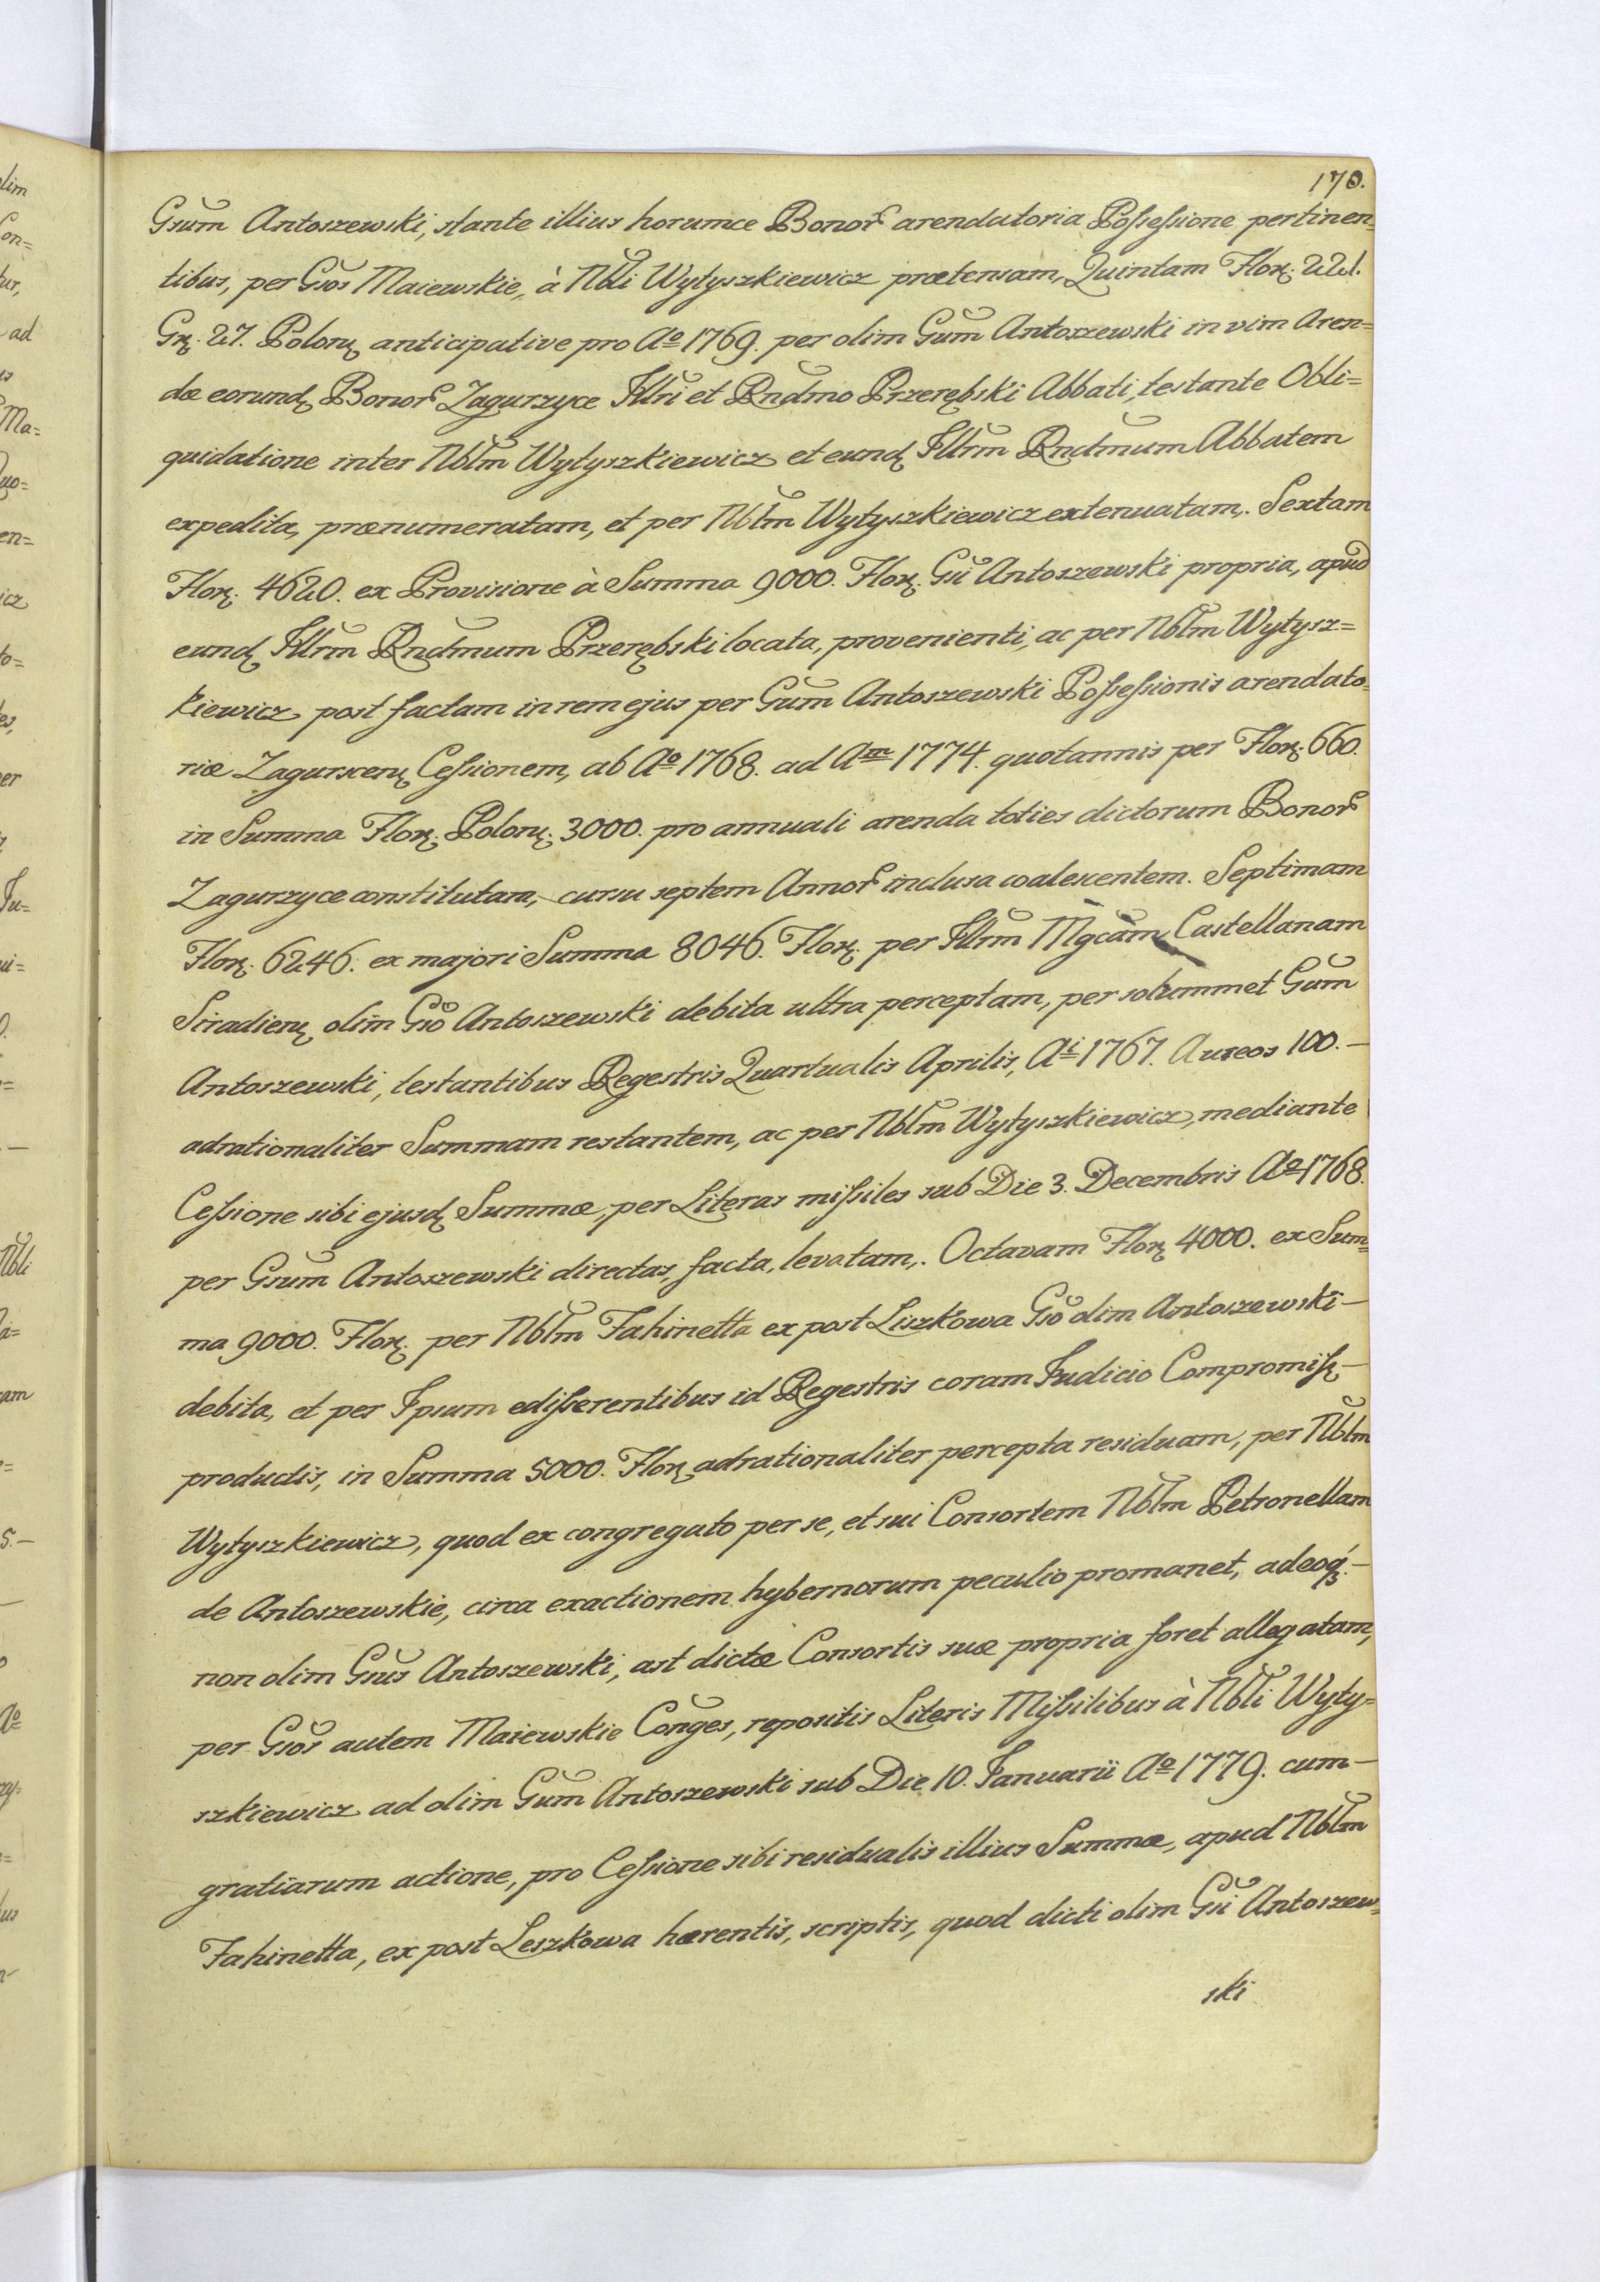 170.
Gsum Antoszewski, stante illius horumce Bonor̃ arendatoria Possessione pertinen=
tibus, per Gsos Maiewskie, à Nbli Wytyszkiewicz prætensam, Quintam Flor: 221.
Gr: 27. Polon: anticipative pro Aº 1769. per olim Gum Antoszewski in vim Aren=
dæ eorund: Bonor̃ Zagurzyce Illri et Rndmo Przerębski Abbati, testante Obli=
quidatione inter Nblm Wytyszkiewicz et eund: Illrm Rndmum Abbatem
expedita, prænumeratam, et per Nblm Wytyszkiewicz extenuatam,. Sextam
Flor: 4620. ex Provisione à Summa 9000. Flor: Gsi Antoszewski propria, apud
eund: Illrm Rndmum Przerębski locata, provenienti, ac per Nblm Wytysz=
kiewicz post factam in rem ejus per Gum Antoszewski Possessionis arendato=
riæ Zagurscen: Cessionem, ab Aº 1768. ad Aͫ 1774. quotannis per Flor: 660.
in Summa Flor: Polon: 3000. pro annuali arenda toties dictorum Bonor̃
Zagurzyce constitutam, cursu septem Annor̃ inclusa coalescentem. Septimam
Flor: 6246. ex majori Summa 8046. Flor: per Illrm Mgcam Castellanam
Siradien: olim Gso Antoszewski debita ultra perceptam, per solummet Gum
Antoszewski, testantibus Regestris Quartualis Aprilis, Aⁱ 1767. Aureos 100.—
adrationaliter Summam restantem, ac per Nblm Wytyszkiewicz, mediante
Cessione sibi ejusd: Summæ, per Literas missiles sub Die 3. Decembris Aº 1768.
per Gsum Antoszewski directas, facta, levatam,. Octavam Flor: 4000. ex Sum=
ma 9000. Flor: per Nblm Fahinetta ex post Liszkowa Gso olim Antoszewski—
debita, et per Ipsum edisserentibus id Regestris coram Iudicio Compromiss:—
productis, in Summa 5000. Flor: adrationaliter percepta residuam, per Nblm
Wytyszkiewicz, quod ex congregato per se, et sui Consortem Nblm Petronellam
de Antoszewskie, circa exactionem hybernorum peculio promanet, adeoq́;—
non olim Gsus Antoszewski, ast dictæ Consortis suæ propria foret allegatam,
per Gsos autem Maiewskie Conges, repositis Literis Missilibus à Nbli Wyty=
szkiewicz ad olim Gum Antoszewski sub Die 10. Ianuarii Aº 1779. cum—
gratiarum actione, pro Cessione sibi residualis illius Summæ, apud Nblm
Fahinetta, ex post Leszkowa hærentis, scriptis, quod dicti olim Gsi Antoszew=
ski